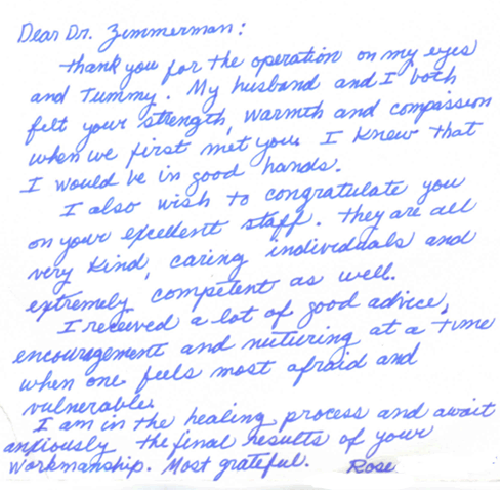 Dear Dr. Zimmerman:
Thank you for the operation on my eyes
and Tummy. My husband and I both
felt your strength, warmth and compassion
when we first met you. I knew that
I would be in good hands.
I also wish to congratulate you
on your excellent staff. They are all
very kind, caring individuals and
extremely competent as well.
I received a lot of good advice,
encouragement and nuturing at a time
when one feels most afraid and
vulnerable.
I am in the healing process and await
anxiously the final results of your
workmanship. Most grateful. Rose